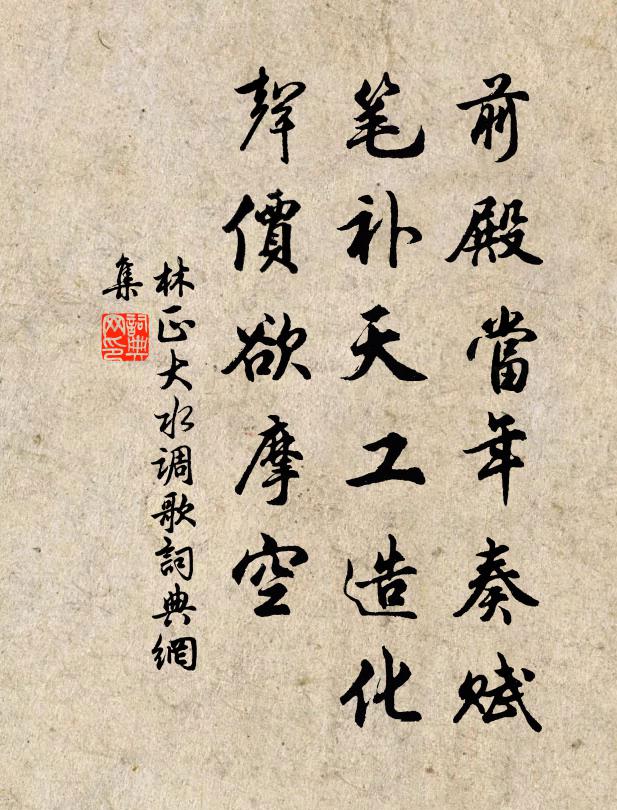 前殿當年奏赋
笔补天工造化
聲價欲摩空
林正大水调歌詞典網
集
詞典
网印